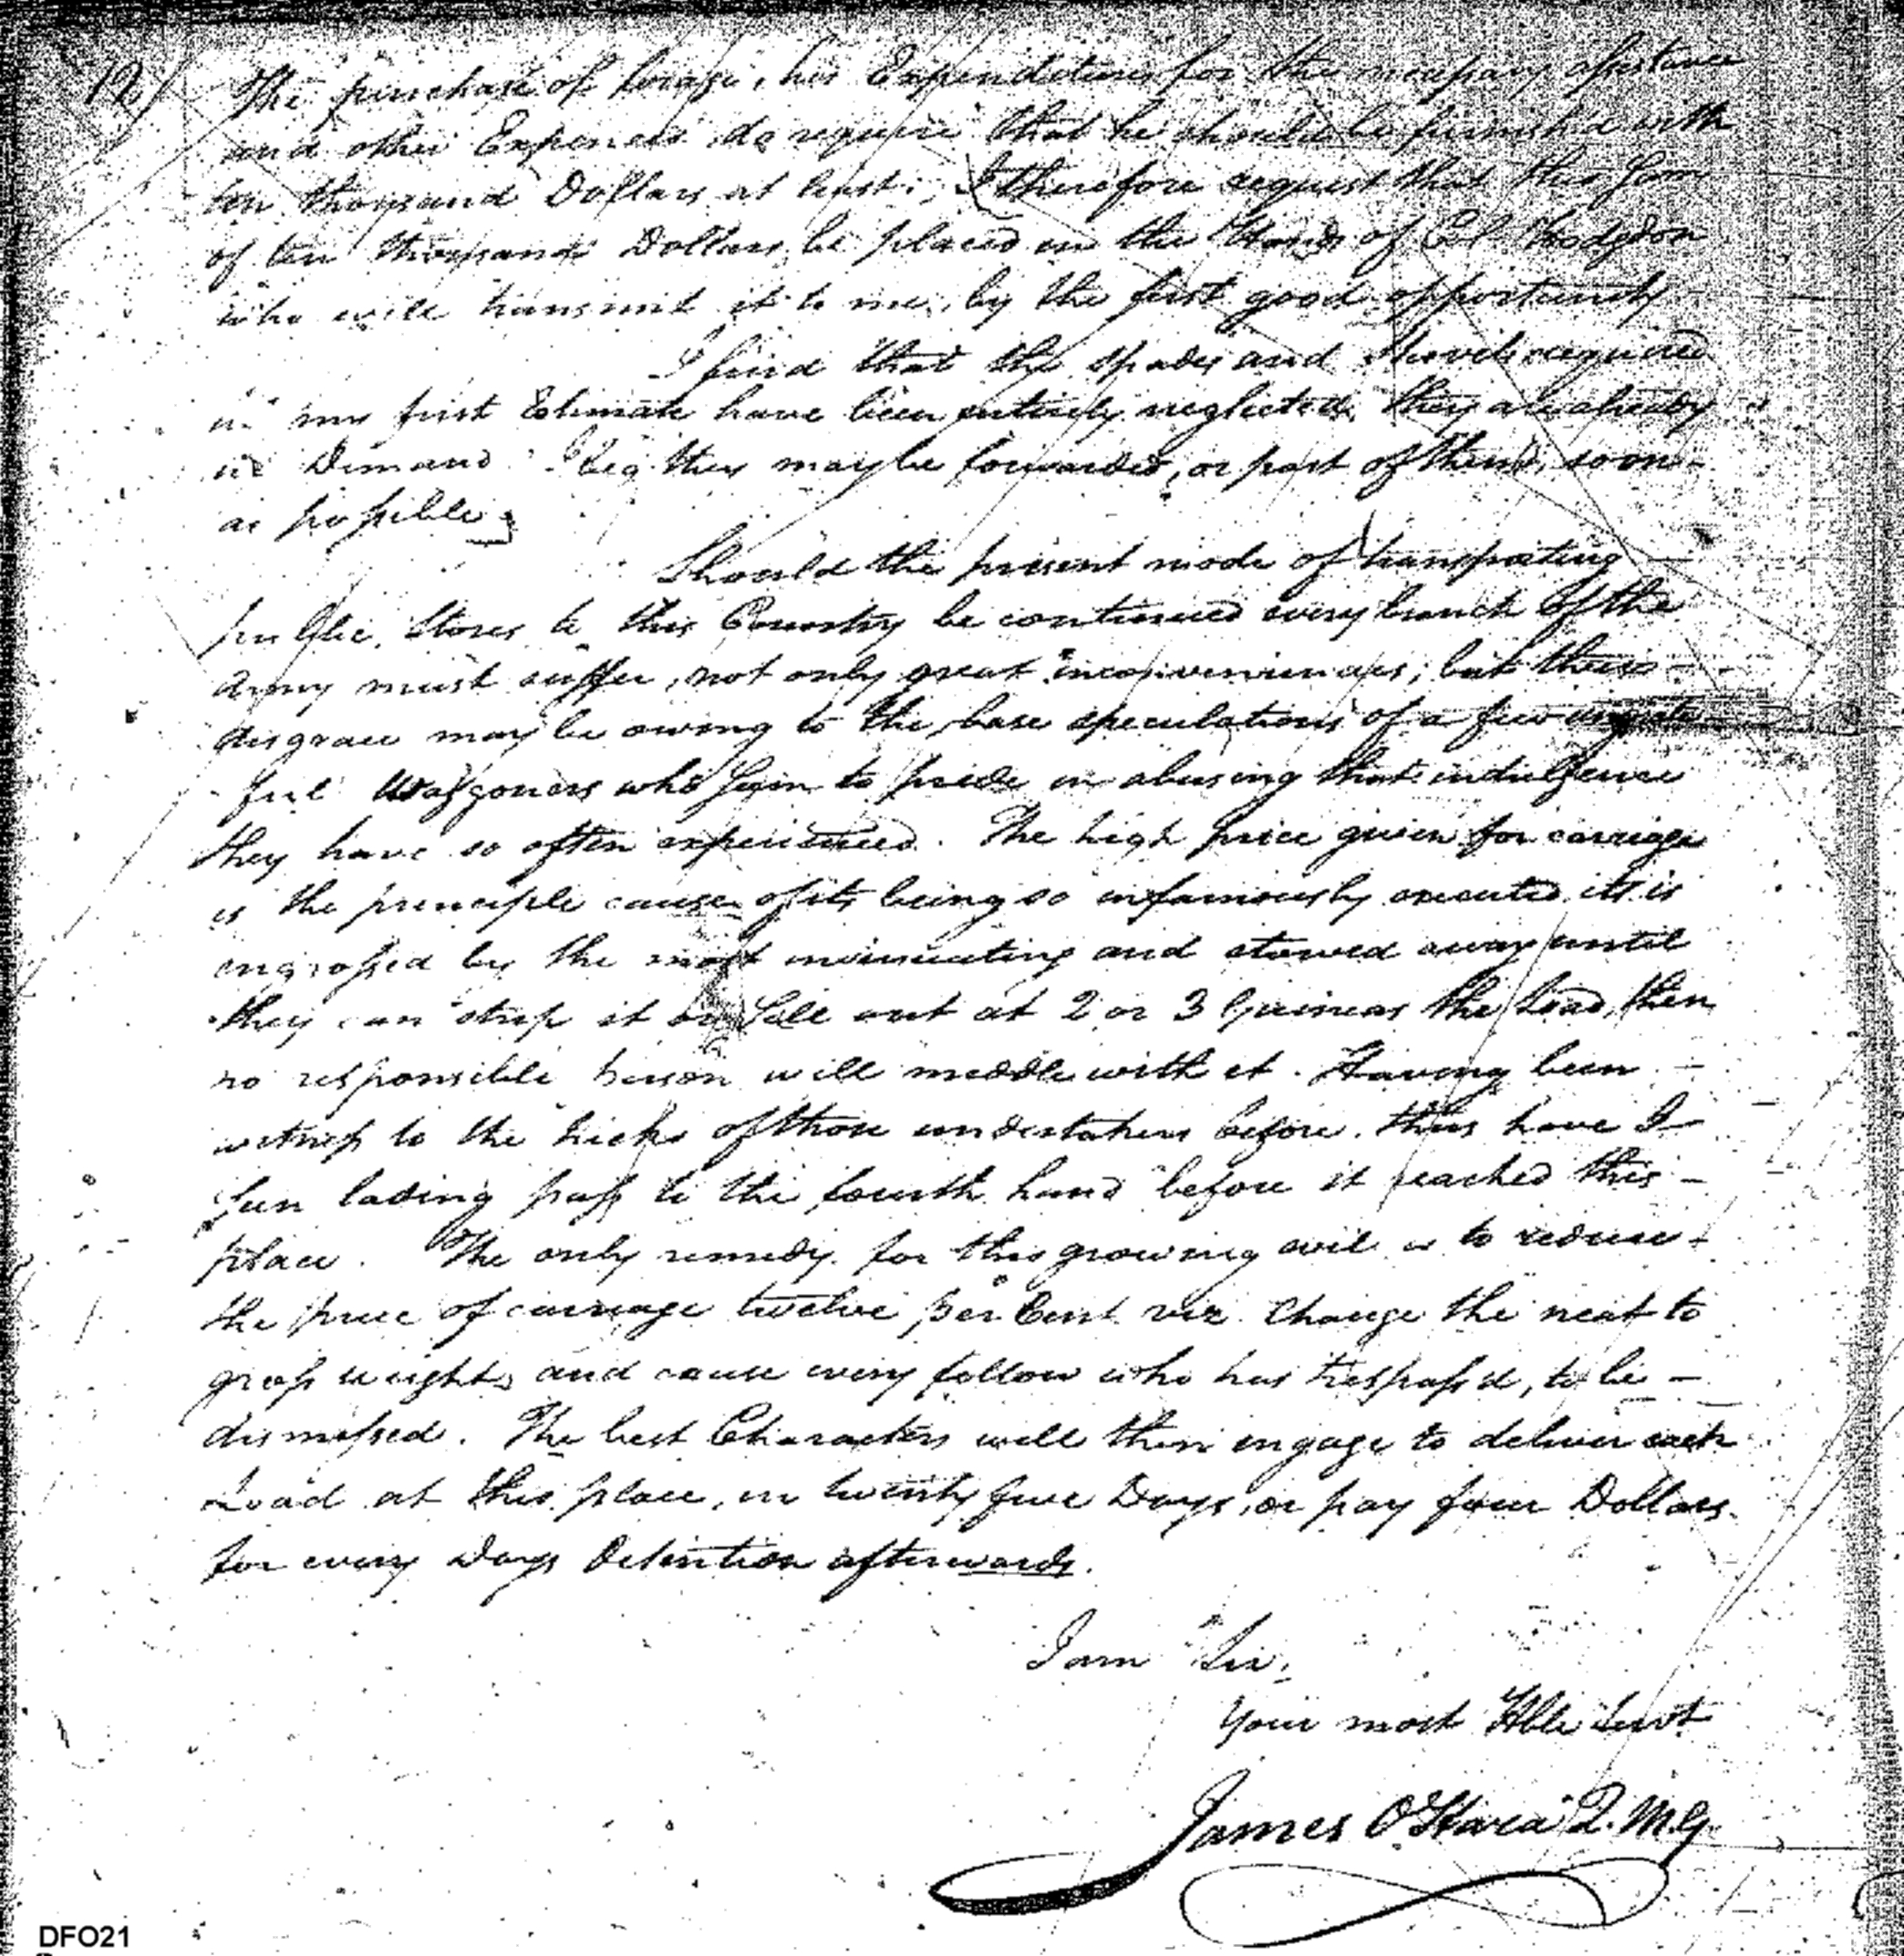 12/ The purchase of forage, his Expenditures for the necessary assistance
and other Expences do require that he should be furnish'd with
ten thousand Dollars at least; I therefore request that this Sum
of ten thousand Dollars be placed in the Hands of Col. Hodgdon
who will transmit it to me, by the first good opportunity
I find that the spades and shovels required
in my first Estimate have been entirely neglected, they are already
in Demand. I beg they may be forwarded, or part of them, soon
as possible
Should the present mode of transporting
public Stores to this Country be continued every branch of the
Army must suffer, not only great inconveniencies; but their
disgrace may be owing to the base speculations of a few
Waggoners who seem to pride in abusing that indulgence
they have so often experienced. The high price given for carriage
is the principle cause of its being so infamously executed, it is
engrossed by the most insinuating and stowed away until
they can strip it or Sell out at 2 or 3 Guineas the Load, then
no responsible person will meddle with it. Having been
witness to the tricks of those undertakers before, thus have I
seen lading pass to the fourth hand before it reached this
place. The only remedy for this growing evil is to reduce
the price of carriage twelve per Cent viz. Change the neat to
gross weight, and cause every fellow who has trespass'd, to be
dismissed. The best Characters will then engage to deliver each
Load at this place, in twenty five Days, or pay four Dollars
for every Days Detention afterwards.
I am Sir,
Your most Hble Servt
James O'Hara Q.M.G.
DFO21